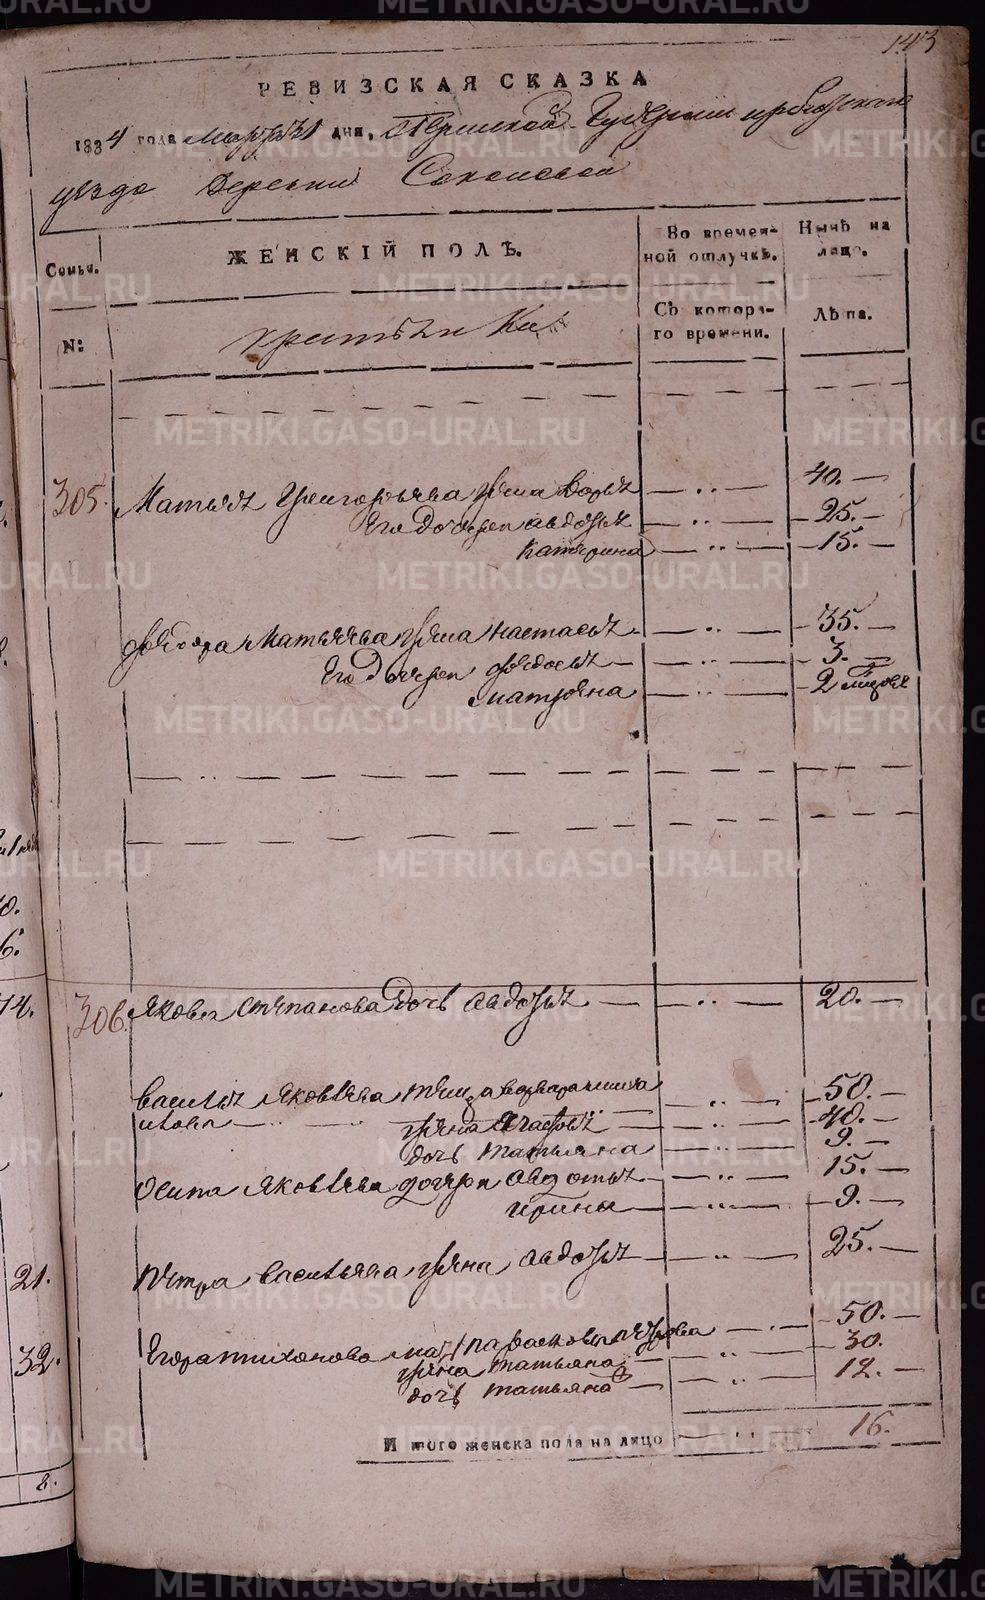 143
РЕВИЗСКАЯ СКАЗКА
1834 года Марта 1 дня. Пермской Губернии Ирбитского
уезда Деревни
Семьи. ЖЕНСКІЙ ПОЛЪ. Во времен- Нынѣ на
ной отлучкѣ. лицо.
№: крестьянки Съ котора- Лѣта.
го времени.
305. Матвея Григорьева жена Дарья — 40. —
Его дочери Авдотья — 25. —
Катерина — 15. —
Федора Матвеева жена Настасья — 35. —
Его дочери Федосья — 3. —
Матрена — 2
306. Якова Степанова дочь Авдотья — 20. —
Василья Яковлева — 50. —
жена — 40. —
дочь Татьяна — 9. —
Осипа Яковлева дочери Авдотья — 15. —
Ирина — 9. —
Петра Васильева жена Авдотья — 25. —
Егора Тихонова мать Парасковья Петрова — 50. —
жена Татьяна — 30.
дочь Татьяна — 12. —
И того женска пола на лицо 16.
0.
6.
14.
21.
32.
8.
METRIKI.GASO-URAL.RU